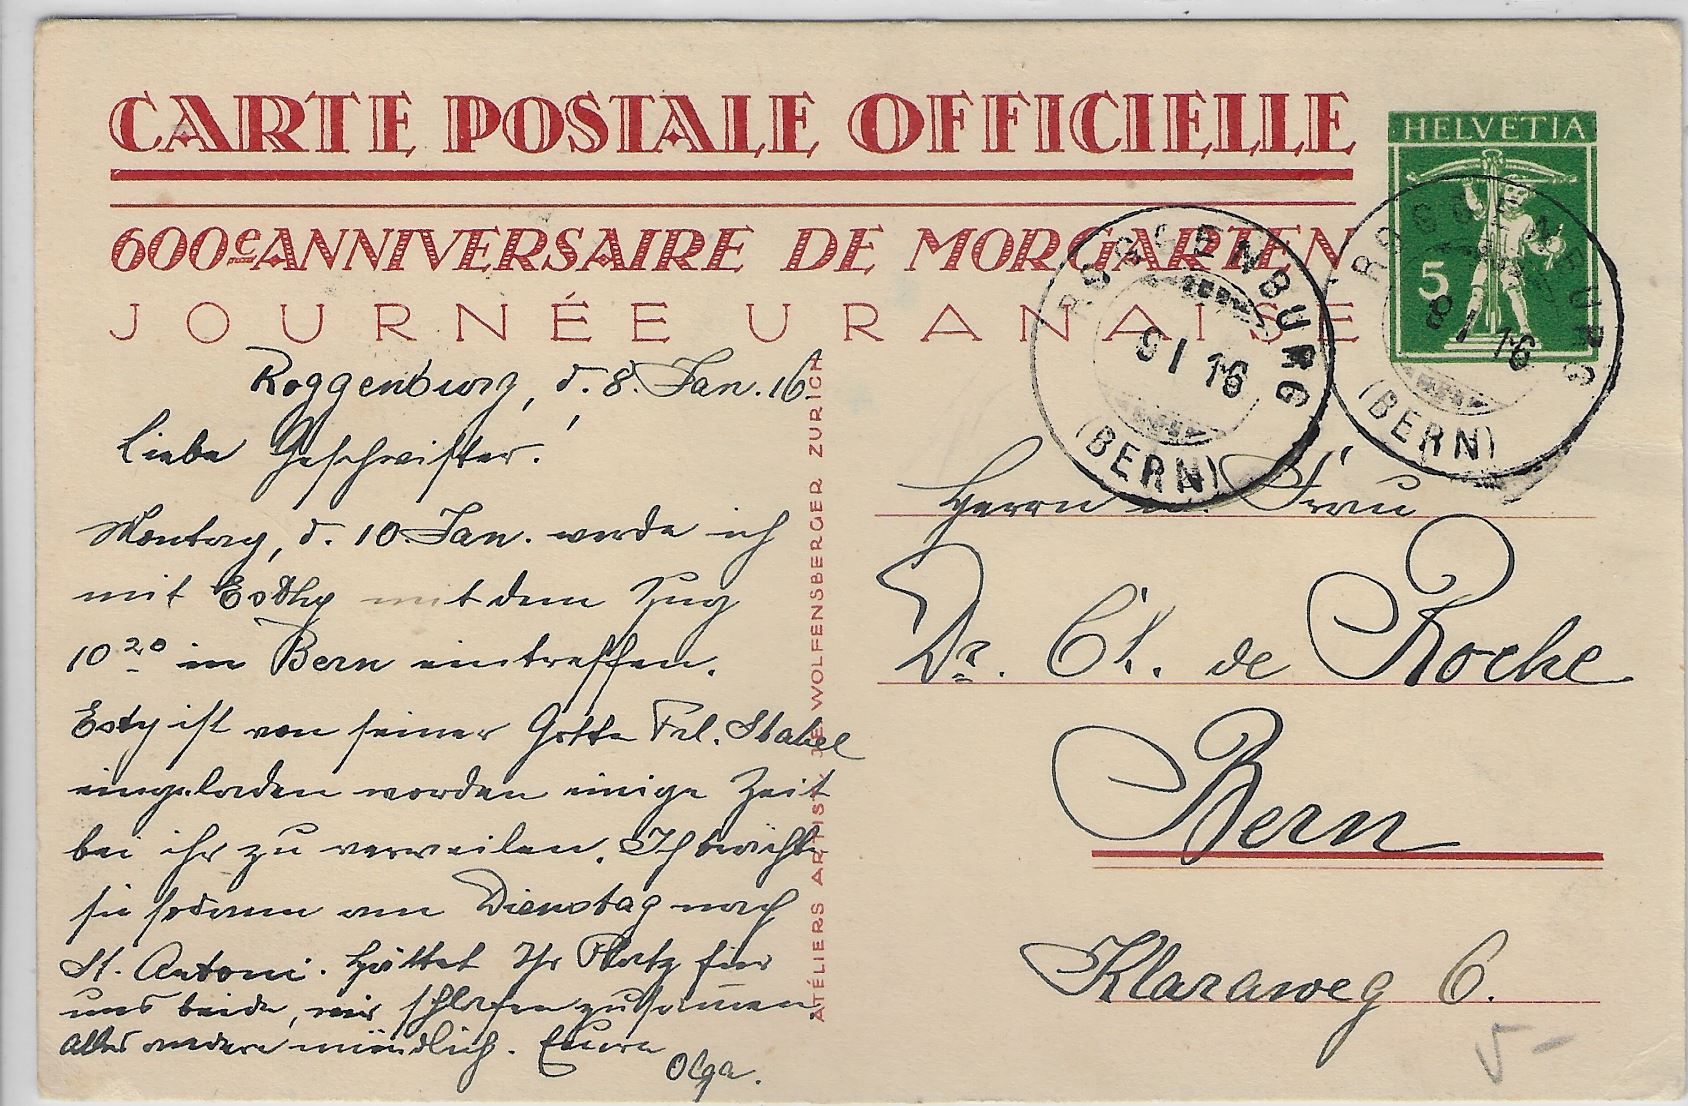 CARTE POSTALE OFFICIELLE
600e ANNIVERSAIRE DE MORGARTEN
JOURNÉE URANAISE
HELVETIA
5
ROGGENBURG
8 I 16
(BERN)
ROGGENBURG
9 I 16
(BERN)
Roggenburg, d. 8. Jan. 16.
Liebe Geschwister!
Montag, d. 10. Jan. werde ich
mit Esthy mit dem Zug
10 20 in Bern eintreffen.
Esty ist von seiner Gotte Frl. Stabel
eingeladen worden einige Zeit
bei ihr zu verweilen. Ich brächte
sie sodann am Dienstag nach
St. Antoni. Hättet Ihr Platz für
uns beide, wir schlafen zusammen.
Alles andere mündlich. Eure
Olga.
ATELIERS ARTIST. J. E. WOLFENSBERGER ZURICH
Herrn u. Frau
Dr. Ch. de Roche
Bern
Klaraweg 6.
5-